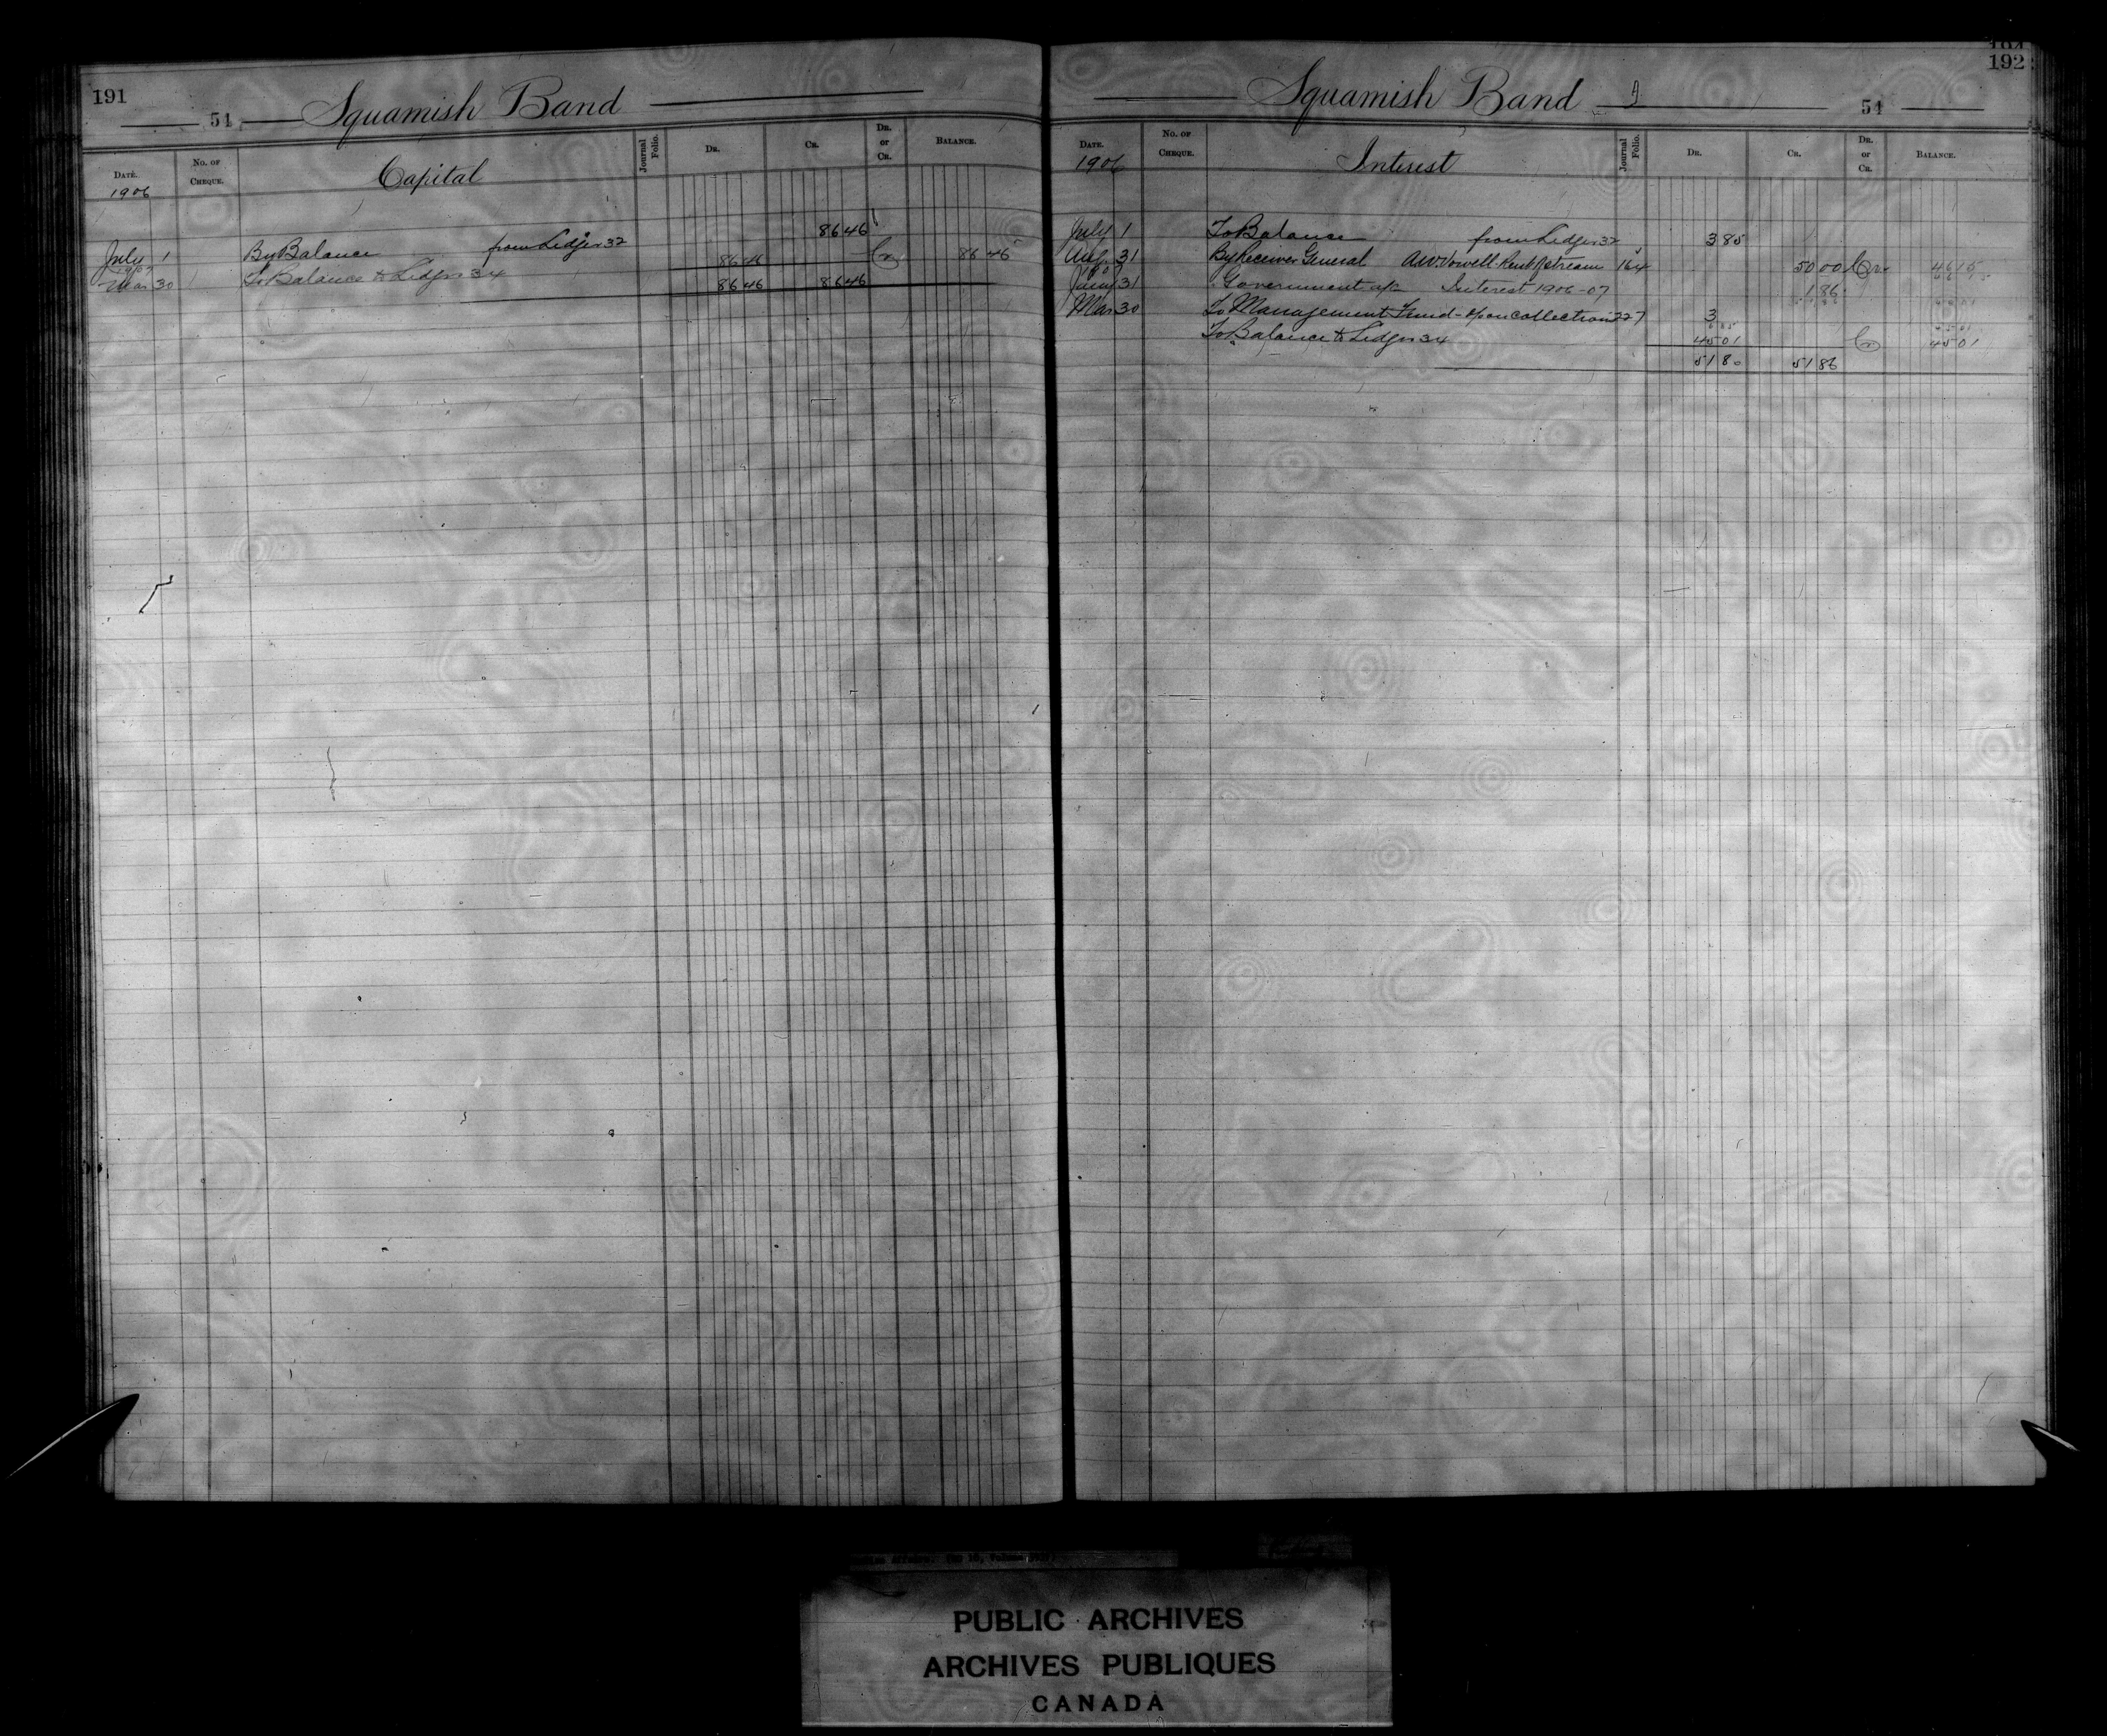 191
51 Squamish Band
DATE. No. of Cheque. Capital Journal Folio. DR. CR. DR. or CR. BALANCE.
1906
July 1 By Balance from Ledger 32 86 46 Cr 86 46
1907
Mar 30 To Balance to Ledger 34 86 46
86 46 86 46
192
Squamish Band 51
DATE. No. of Cheque. Interest Journal Folio. DR. CR. DR. or CR. BALANCE.
1906
July 1 To Balance from Ledger 32 3 85
Aug. 31 By Receiver General A.W. Vowell Rent 164 50 00 Cr. 46 15
31 Government a/c Interest 1906-07 1 86
Mar 30 To Management Fund - upon collections 227 3
To Balance to Ledger 34 45 01 Cr 45 01
51 86
PUBLIC ARCHIVES
ARCHIVES PUBLIQUES
CANADA